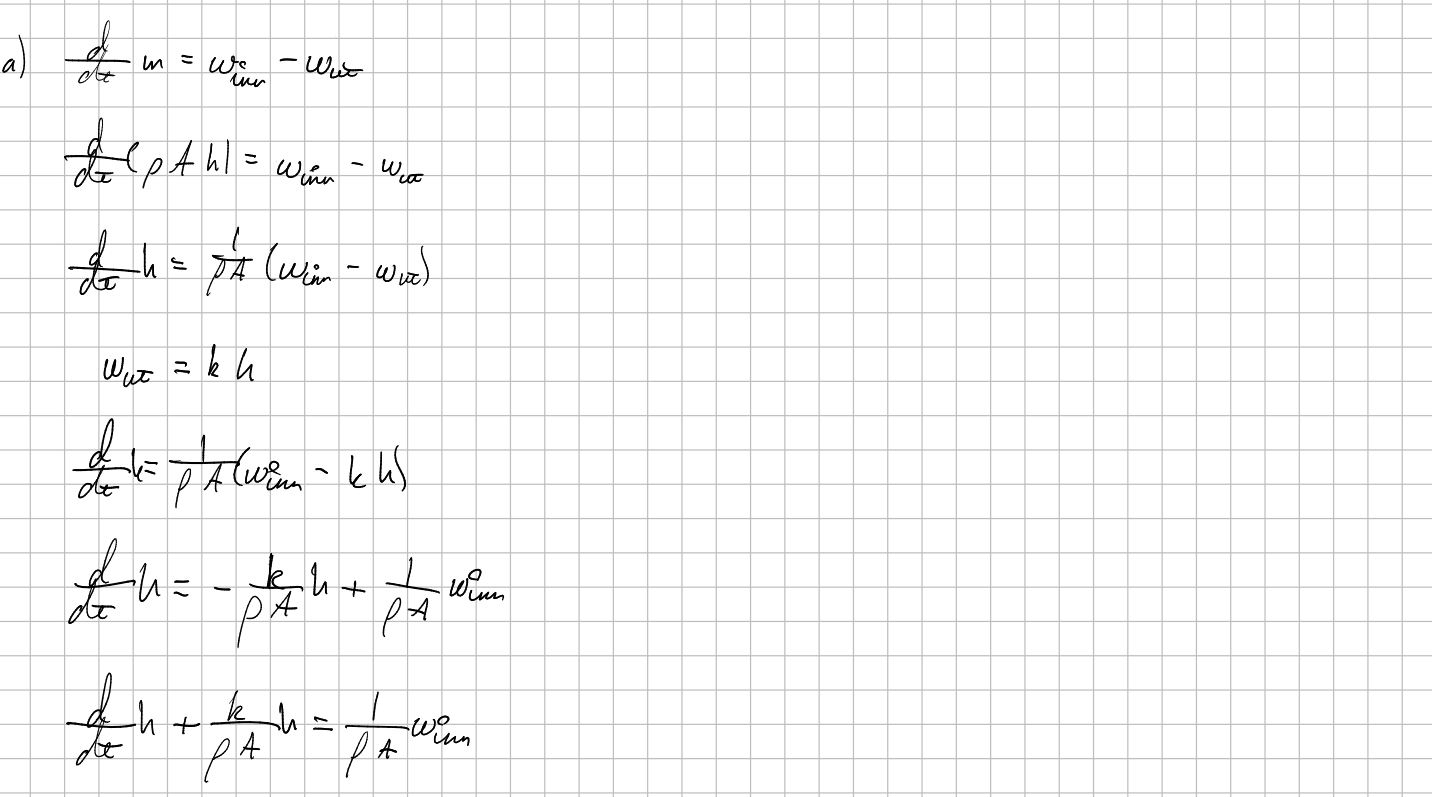 a) d/dt m = w_inn - w_ut
d/dt (ρ A h) = w_inn - w_ut
d/dt h = 1/ρA (w_inn - w_ut)
w_ut = k h
d/dt h = 1/ρA (w_inn - k h)
d/dt h = - k/ρA h + 1/ρA w_inn
d/dt h + k/ρA h = 1/ρA w_inn